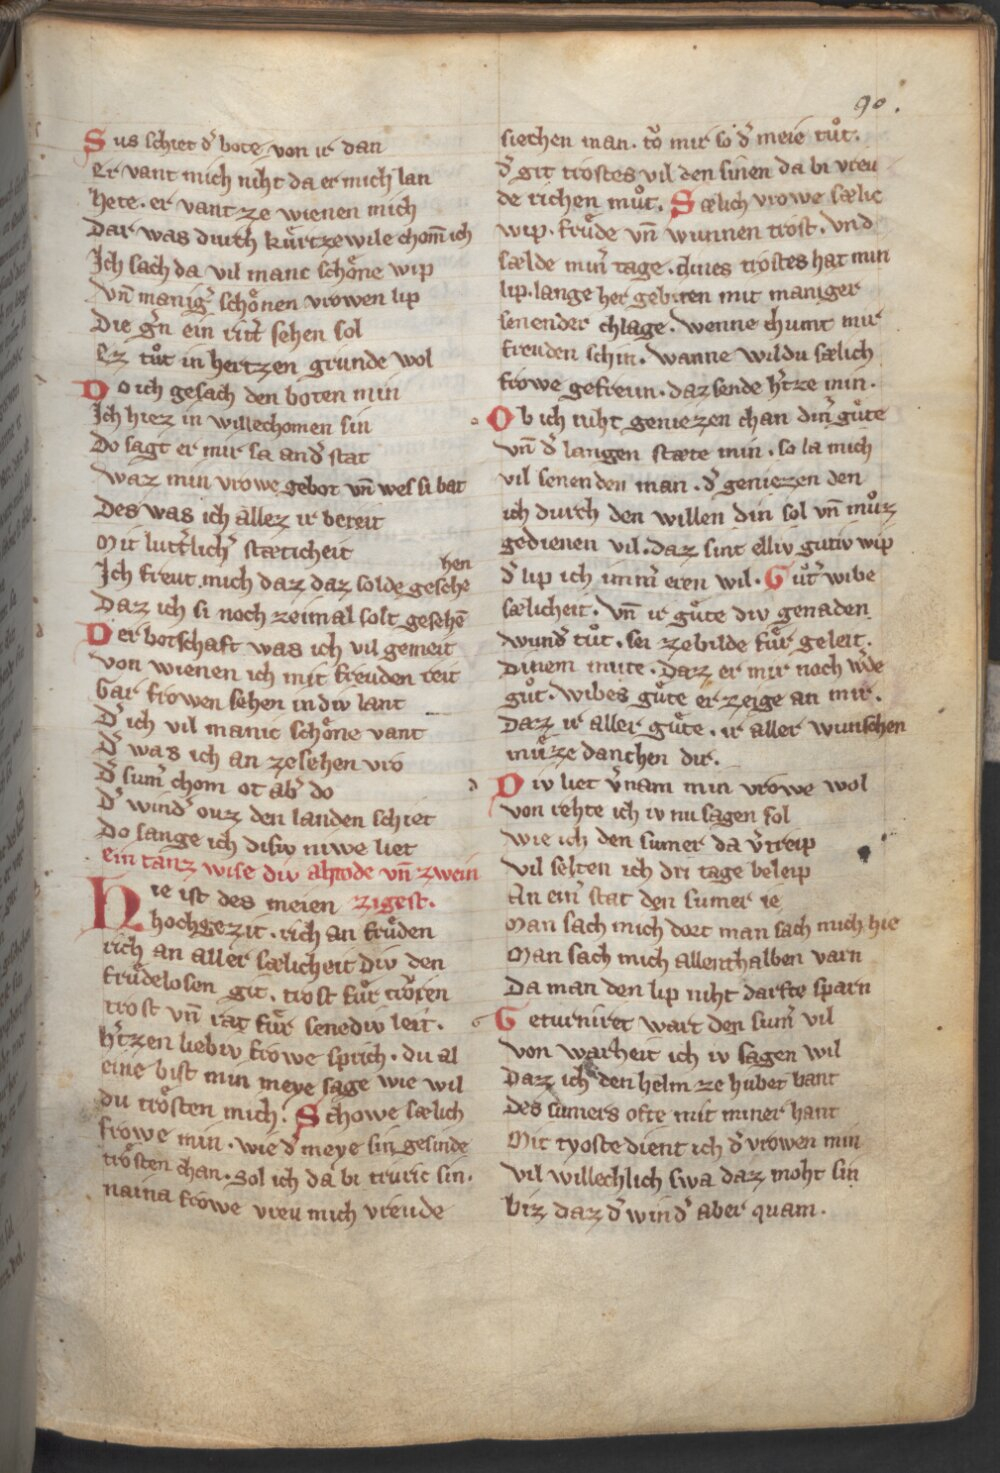 90.
Sus schiet d̛ bote von ir dan
Er vant mich niht da er mich lan
Hete. er vant ze wienen mich
Dar was durch kuͤrtzewile chom̄ ich
Ich sach da vil manc schoͤne wip
Vn̄ manig̛ schoͤnen vrowen lip
Die g̛n ein ritt̛ sehen sol
Ez tuͦt in hertzen grunde wol
Do ich gesach den boten min
Ich hiez in willechomen sin
Do sagt er mir sa and̛ stat
Waz min vrowe gebot vn̄ wes si bat
Des was ich allez ir bereit
Mit lutt̛lich̛ stæticheit
hen
Ich freut mich daz daz solde gesche
Daz ich si noch zeimal solt gesehē
Der botschaft was ich vil gemeit
Von wienen ich mit freuden reit
Gar frowen sehen in div lant
D̛ ich vil manic schoͤne vant
D̛ was ich an ze sehen vro
D̛ sum̛ chom ot ab̛ do
D̛ wind̛ ouz den landen schiet
Do sange ich disiv niwe liet
ein tanz wise div ahtode vn̄ zwein
Hie ist des meien zigest.
hochgezit. rich an fruͤden
rich an aller sælicheit Div den
fruͤdelosen git. trost fuͤr troͮren
trost vn̄ rat fuͤr senediv leit.
h̛tzen liebiv frowe sprich. du al
eine bist min meye sage wie wil
du troͤsten mich. Schowe sælich
frowe min. wie d̛ meye sin gesinde
troͤsten chan. Sol ich da bi truric sin.
naina frowe vreu mich vreude
siechen man. toͮ mir so d̛ meie tuͦt.
d̛ git trostes vil den sinen da bi vreu
de richen muͦt. Sælich vrowe sælic
wip. fruͤde vn̄ wunnen trost. vnd
sælde min̛ tage. dines trostes hat min
lip. lange her gebiten mit maniger
senender chlage. wenne chumt mir
freuden schin. wanne wildu sælich
frowe gefreun. daz sende h̛tze min.
Ob ich niht geniezen chan din̛ guͤte
vn̄ d̛ langen stæte min. so la mich
vil senenden man. d̛ geniezen den
ich durch den willen din sol vn̄ muͦz
gedienen vil. daz sint elliv gutiv wip
d̛ lip ich imm̛ eren wil. Guͦt̛ wibe
sælicheit. vn̄ ir guͤte div genaden
wund̛ tuͦt. sei ze bilde fuͤr geleit.
dinem mute. Daz er mir noch w̛de
guͦt. wibes guͤte erzeige an mir.
Daz ir aller guͤte. ir aller wunschen
muͤze danchen dir.
Div liet v̛nam min vrowe wol
von rehte ich iv nu sagen sol
wie ich den sumer da v̛treip
Vil selten ich dri tage beleip
An ein̛ stat den sumer ie
Man sach mich dort man sach mich hie
Man sach mich allenthalben varn
Da man den lip niht darfte sparn
Geturniret wart den sum̛ vil
Von warheit ich iv sagen wil
Daz ich den helm ze huber bant
Des sumers ofte mit miner hant
Mit tyoste dient ich d̛ vrowen min
Vil willechlich swa daz moht sin
Biz daz d̛ wind̛ aber quam.